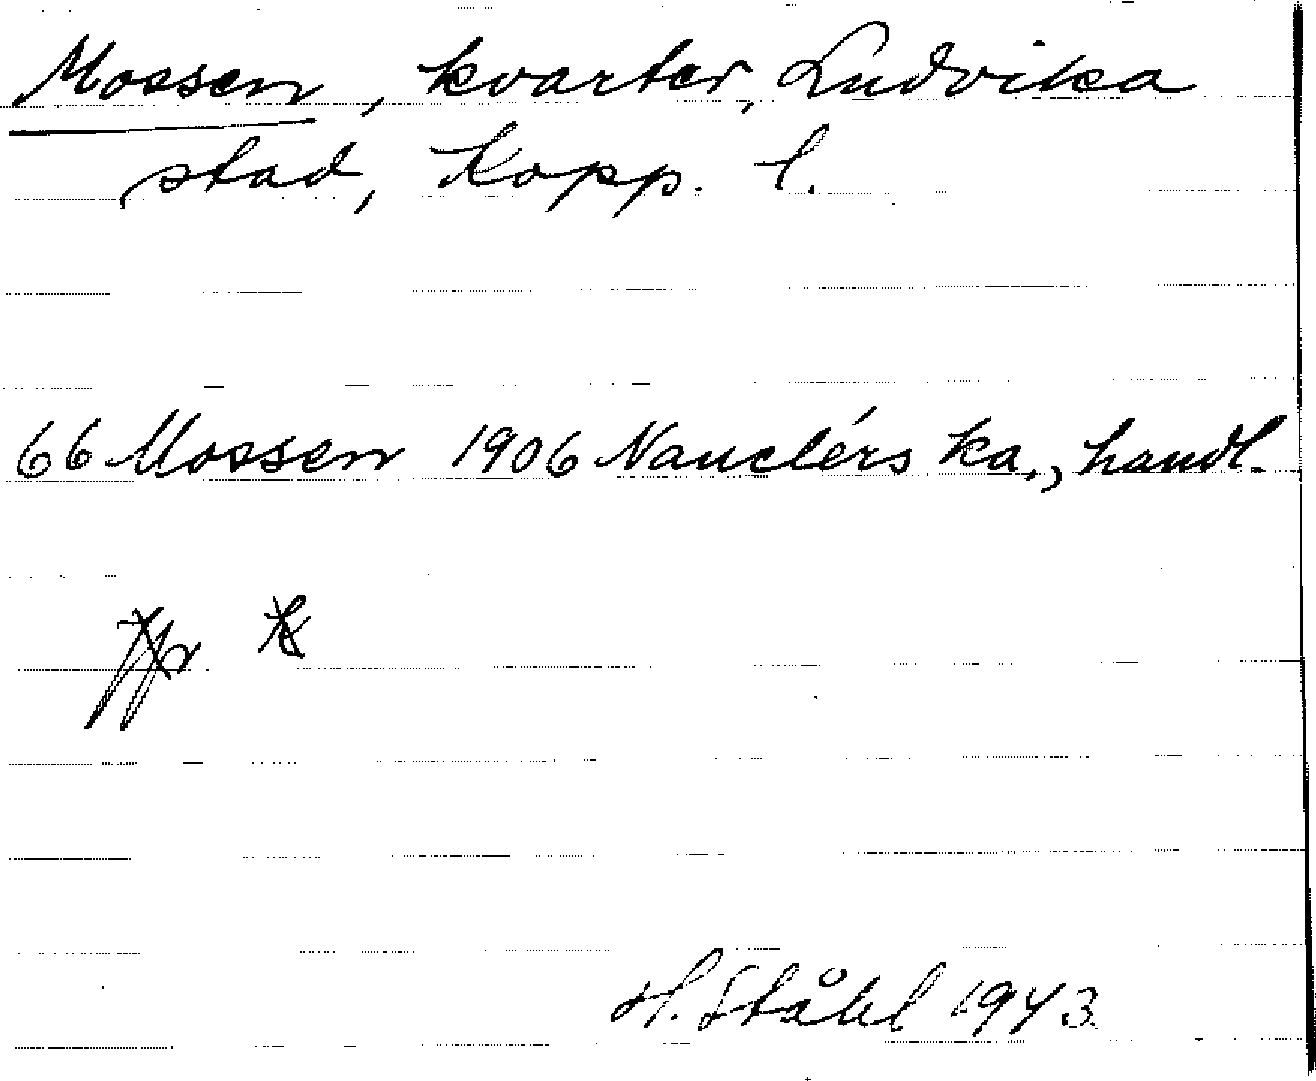 Mossen, kvarter, Ludvika
stad, Kopp. l.
66 Mossen 1906 Nauclérs ka., handl.
H. Ståhl 1943